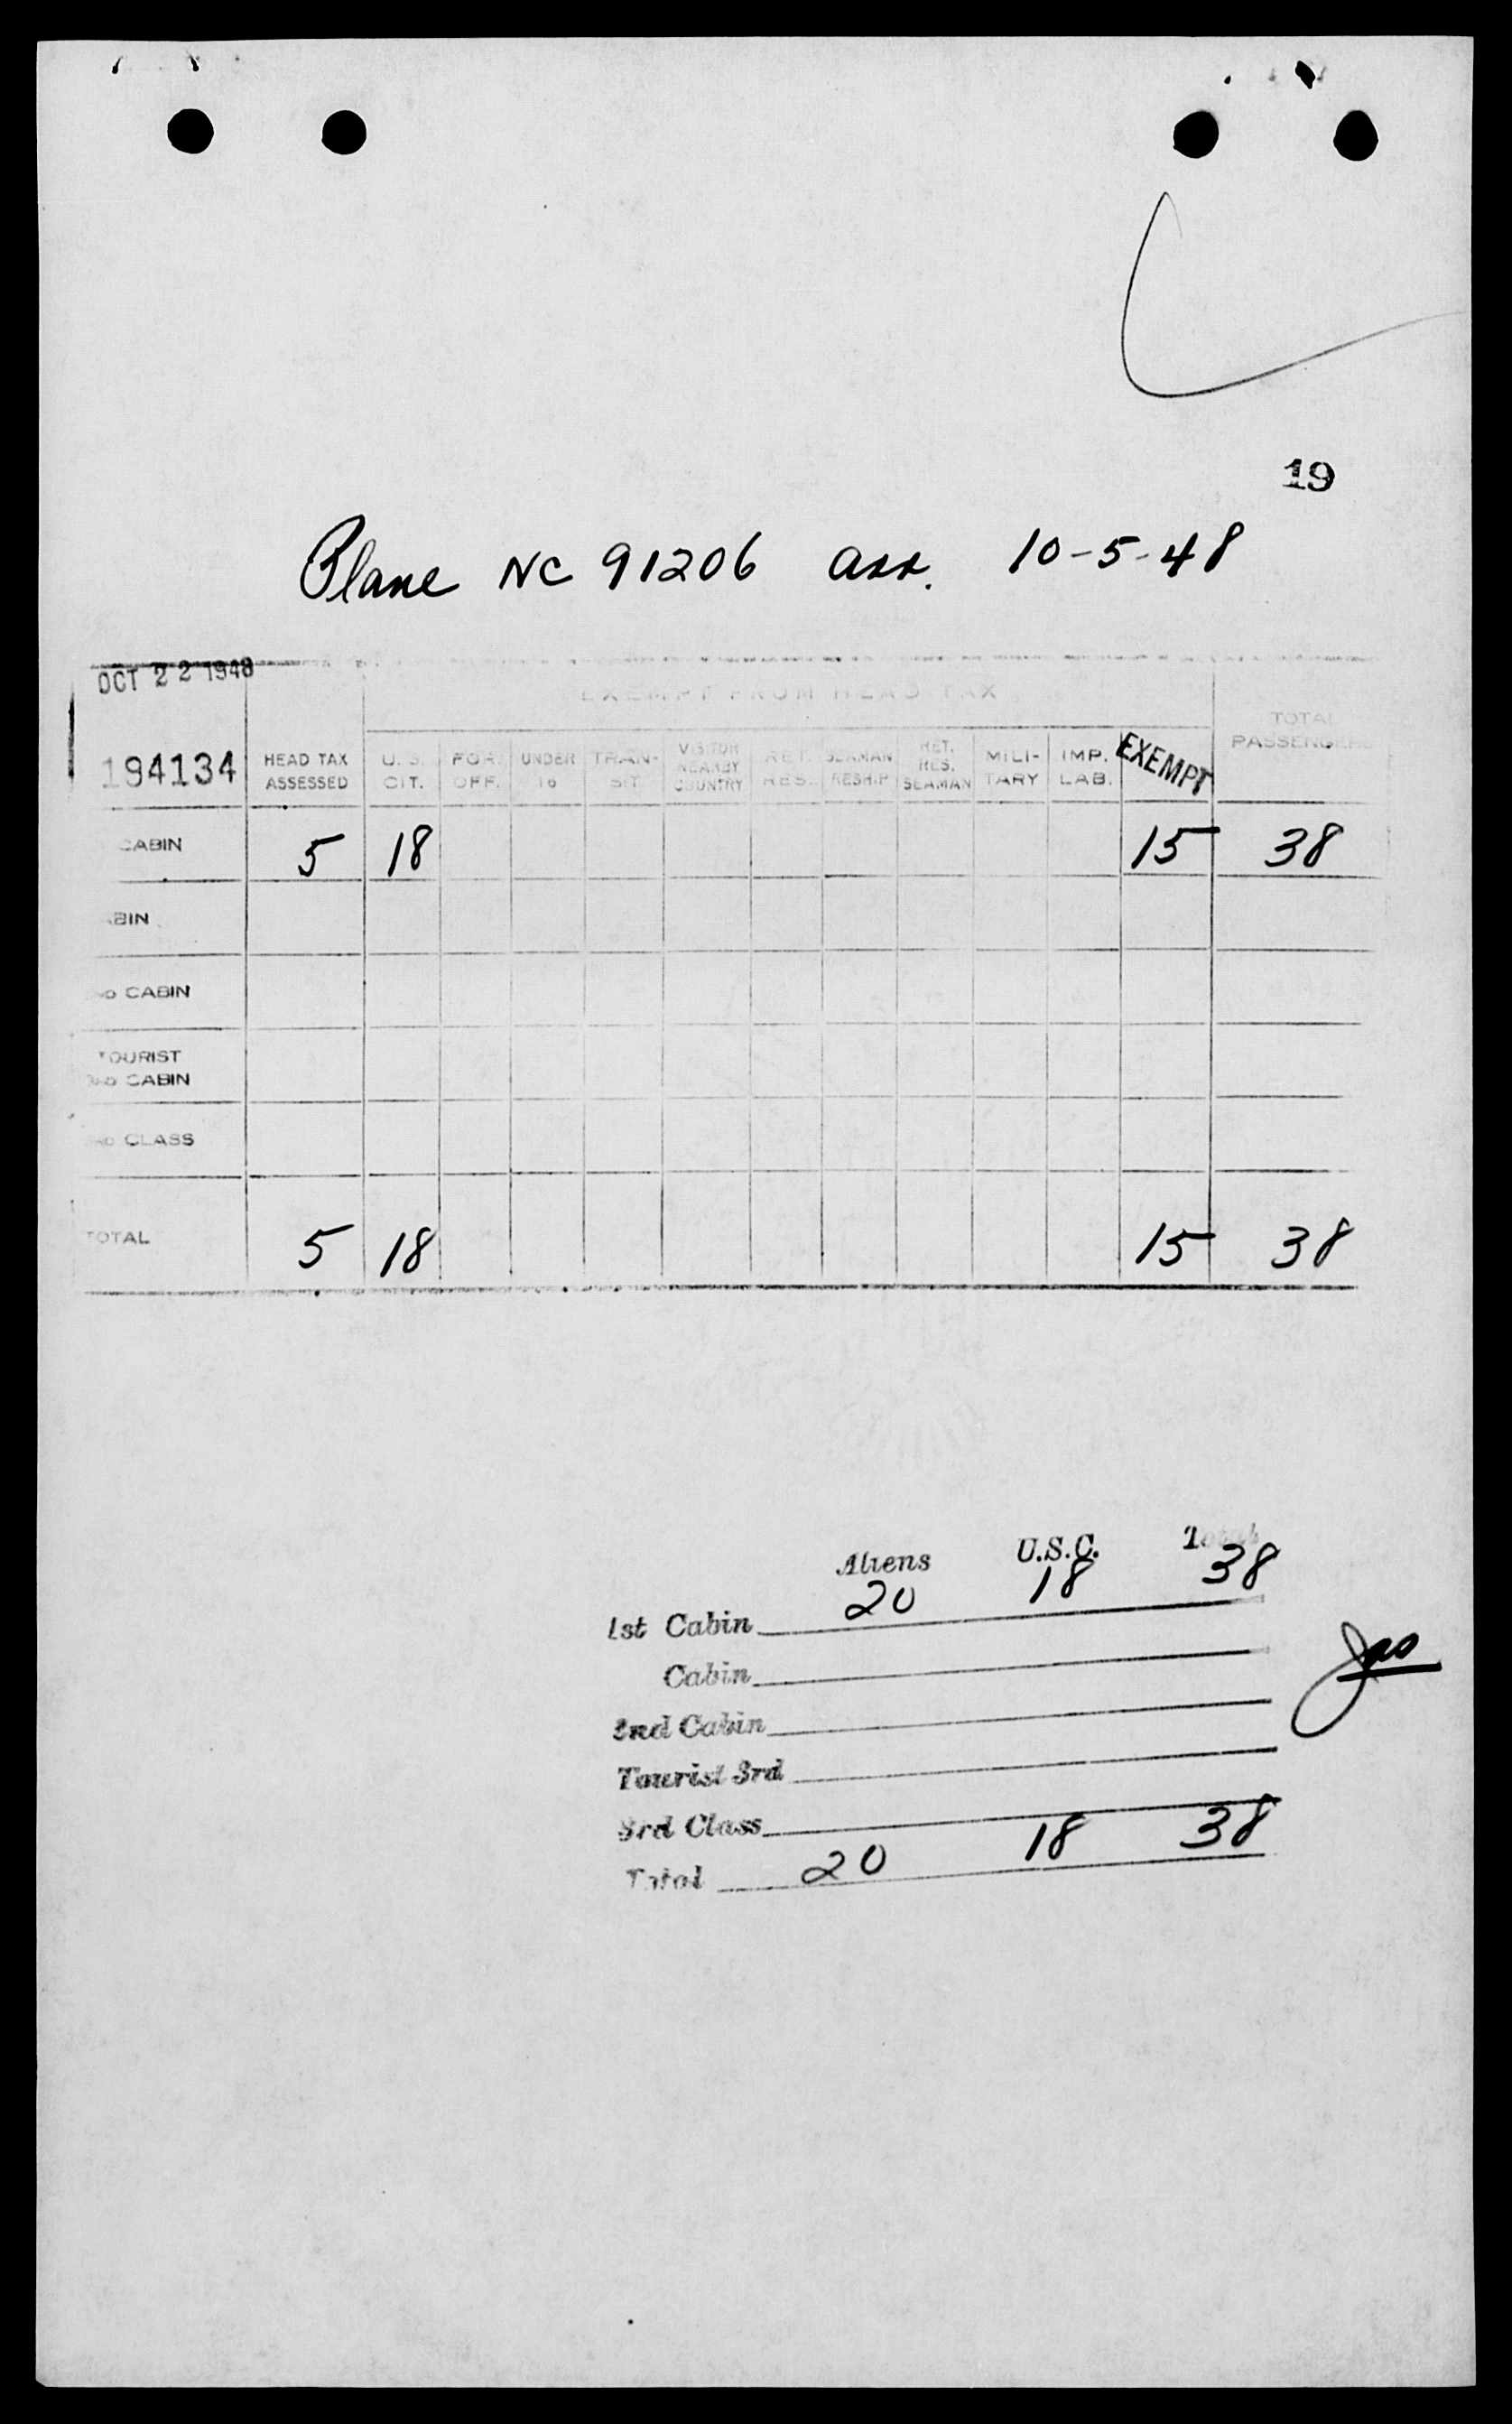 19
Plane NC 91206 arr. 10-5-48
OCT 22 1948
EXEMPT FROM HEAD TAX
194134 HEAD TAX ASSESSED U. S. CIT. FOR. OFF. UNDER 16 TRAN-SIT VISITOR NEARBY COUNTRY RET. RES. SEAMAN RESHIP RET. RES. SEAMAN MILI-TARY IMP. LAB. EXEMPT TOTAL PASSENGERS
CABIN 5 18 15 38
ABIN
ND CABIN
TOURIST
3RD CABIN
RD CLASS
TOTAL 5 18 15 38
Aliens U.S.C. Total
1st Cabin 20 18 38
Cabin
2nd Cabin
Tourist 3rd
3rd Class
Total 20 18 38